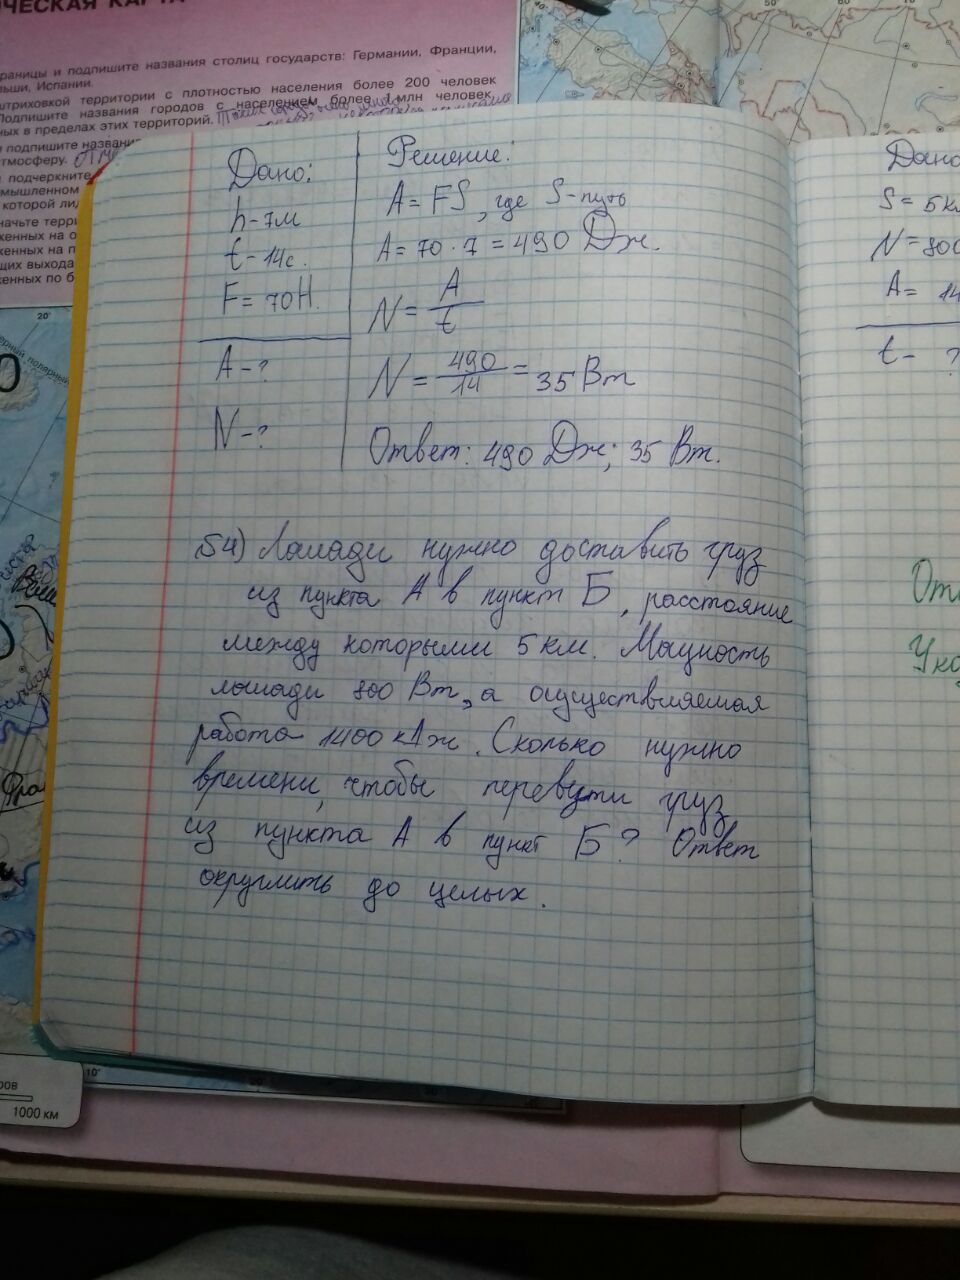 ЧЕСКАЯ КАРТА
раницы и подпишите названия столиц государств: Германии, Франции,
ьши, Испании.
штриховкой территории с плотностью населения более 200 человек
Подпишите названия городов с населением более млн человек,
ных в пределах этих территорий.
и подпишите
тмосферу.
подчеркните
мышленном
которой
начьте терри
женных на о
женных на п
щих выхода
женных по б
Дано:
h-7м
t-14с.
F=70Н.
A-?
N-?
Решение:
A=FS, где S-путь
A=70·7=490 Дж.
N=A/t
N=490/14=35 Вт
Ответ: 490 Дж; 35 Вт.
54) Лошади нужно доставить груз
из пункта А в пункт Б, расстояние
между которыми 5 км. Мощность
лошади 800 Вт, а осуществляемая
работа 1400 кДж. Сколько нужно
времени, чтобы перевезти груз
из пункта А в пункт Б? Ответ
округлить до целых.
Дано
S=5км
N=800
A= 14
t- ?
Отв
20°
10°
1000 км